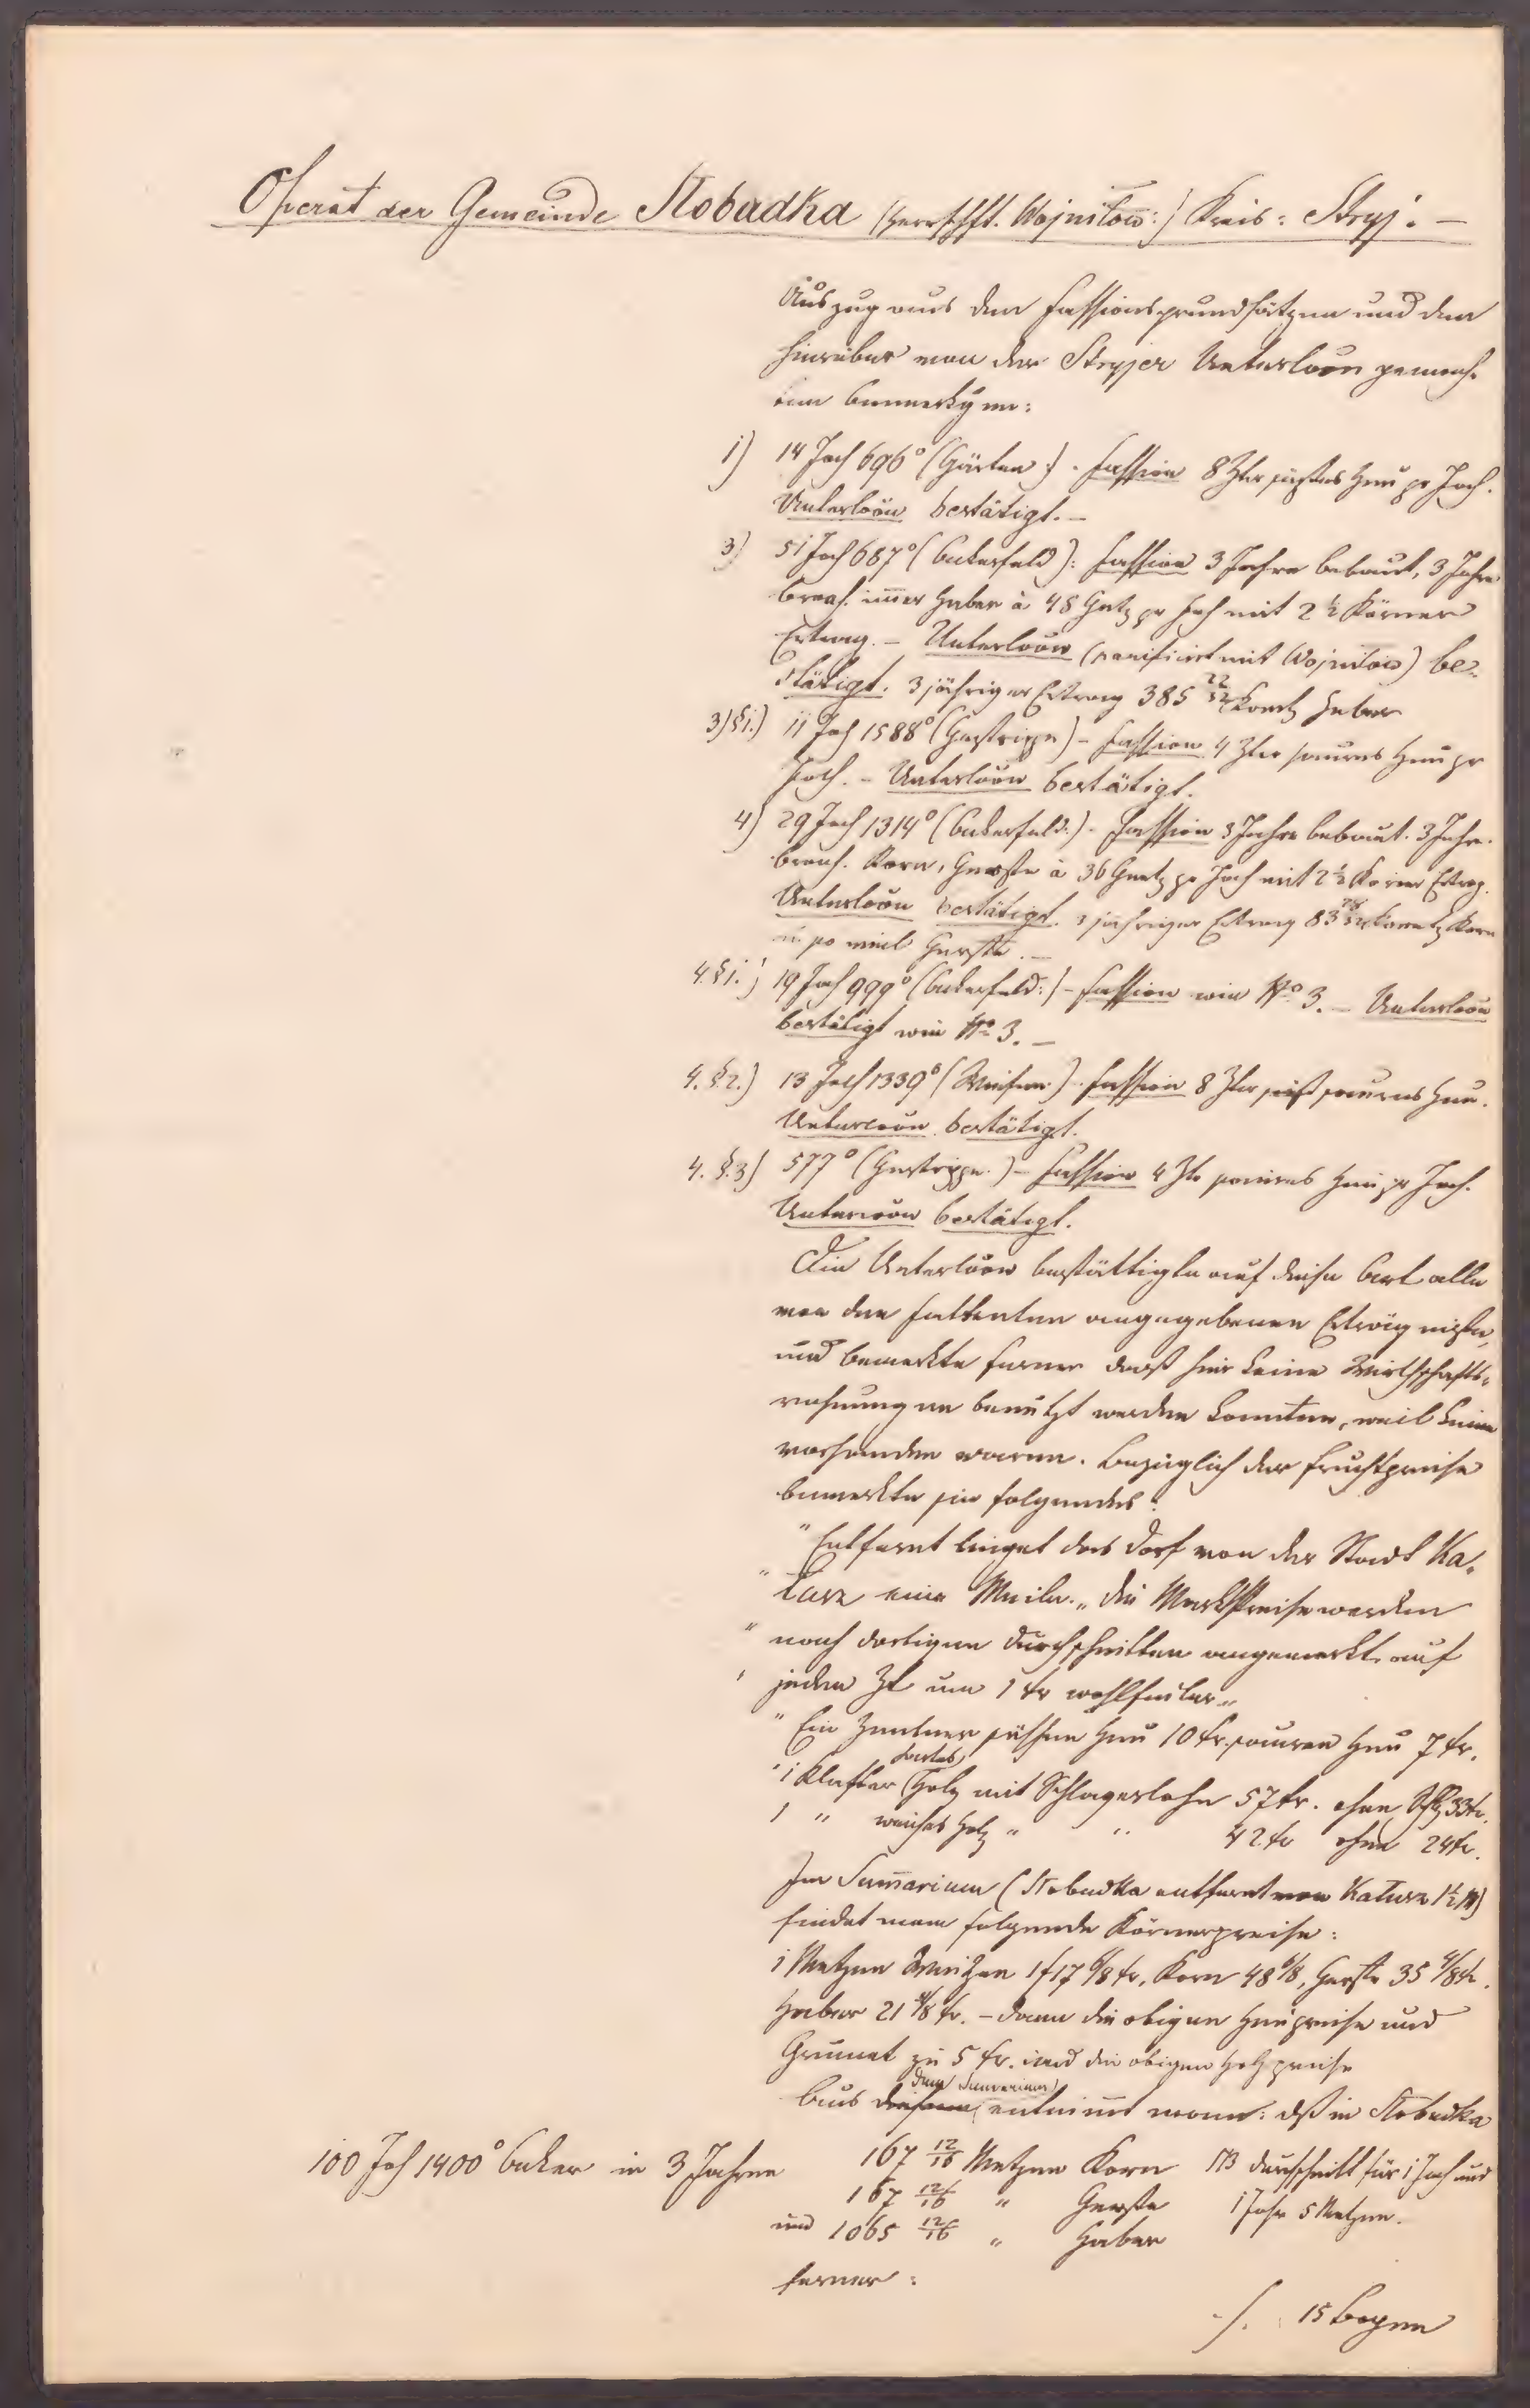 Operat der Gemeinde Slobudka (Herrschft. Wojniłow:) Kreis: Stryj. —
Auszug aus den Fassionsgrundsätzen und den
hierüber von der Stryjer Unterloõn gemach-
ten Bemerkgen:
1) 14 Joch 696° (Gärten:). Fassion 8 Ztr süßes Heu pr Joch.
Unterloõn bestätigt. —
3) 51 Joch 687° (Ackerfeld): Fassion 3 Jahre bebaut, 3 Jahre
brach. im̄er Haber à 48 Gartz pr Joch mit 2 ½ Körner
Ertrag. — Unterloõn (parificirt mit Wojniłow) be-
stätigt. 3 jähriger Ertrag 385 22/32 Koretz Haber
3) § 1.) 11 Joch 1588° (Gestrippe) — Fassion 4 Ztr saures Heu pr
Joch. — Unterloõn bestätigt.
4) 29 Joch 1314° (Ackerfeld:). Fassion 3 Jahre bebaut. 3 Jahre
brach. Korn, Gerste à 36 Gartz pr Joch mit 2 ½ Körner Ertrag.
Unterloõn bestätigt. 3 jähriger Ertrag 83 Koretz Korn
u. so viel Gerste. —
4. § 1.) 19 Joch 999° (Ackerfeld:) — Fassion wie N° 3. — Unterloõn
bestätigt wie N° 3. —
4. § 2.) 13 Joch 1339° (Wiesen:). Fassion 8 Ztr süß saures Heu.
Unterloõn bestätigt.
4. § 3) 577° (Gestrippe.) — Fassion 4 Ztr saures Heu pr Joch.
Unterloõn bestätigt.
Die Unterloõn bestättigte auf diese Art alle
von den Fattenten angegebenen Erträgnisse,
und bemerkte ferner daß hier keine Wirthschafts-
rechnungen benützt werden konnten, weil keine
vorhanden waren. Bezüglich der Fruchtpreise
bemerkte sie folgendes:
"Entfernt lieget das Dorf von der Stadt Ka-
"łusz eine Meile. „ die Marktpreise werden
"nach dortigen Durchschnitten angemerkt auf
"jeden Zt um 1 kr wohlfeiler „
"Ein Zentner süssen Heu 10 kr. sauren Heu 7 kr.
"1 Klafter hartes Holz mit Schlagerlohn 57 kr. ohne Schlg 33 kr.
1 " weiches Holz " " 42 kr ohne 24 kr.
Im Sum̄arium (Slobudka entfernt von Kałusz 1 ½ M)
findet man folgende Körnerpreise:
1 Metzen Weitzen 1 f 17 6/8 kr, Korn 48 6/8, Gerste 35 4/8 kr.
Haber 21 4/8 kr. — dann die obigen Heupreise und
Grumet zu 5 kr. und die obigen Holzpreise
Aus diesem dem Sumarium entnim̄t man: dß in Slobudka
100 Joch 1400° Acker in 3 Jahren 167 12/16 Metzen Korn NB durchschnitt für 1 Joch und
167 12/16 " Gerste 1 Jahr 5 Metzen.
und 1065 12/16 " Haber
ferner:
./. 15 Bogen